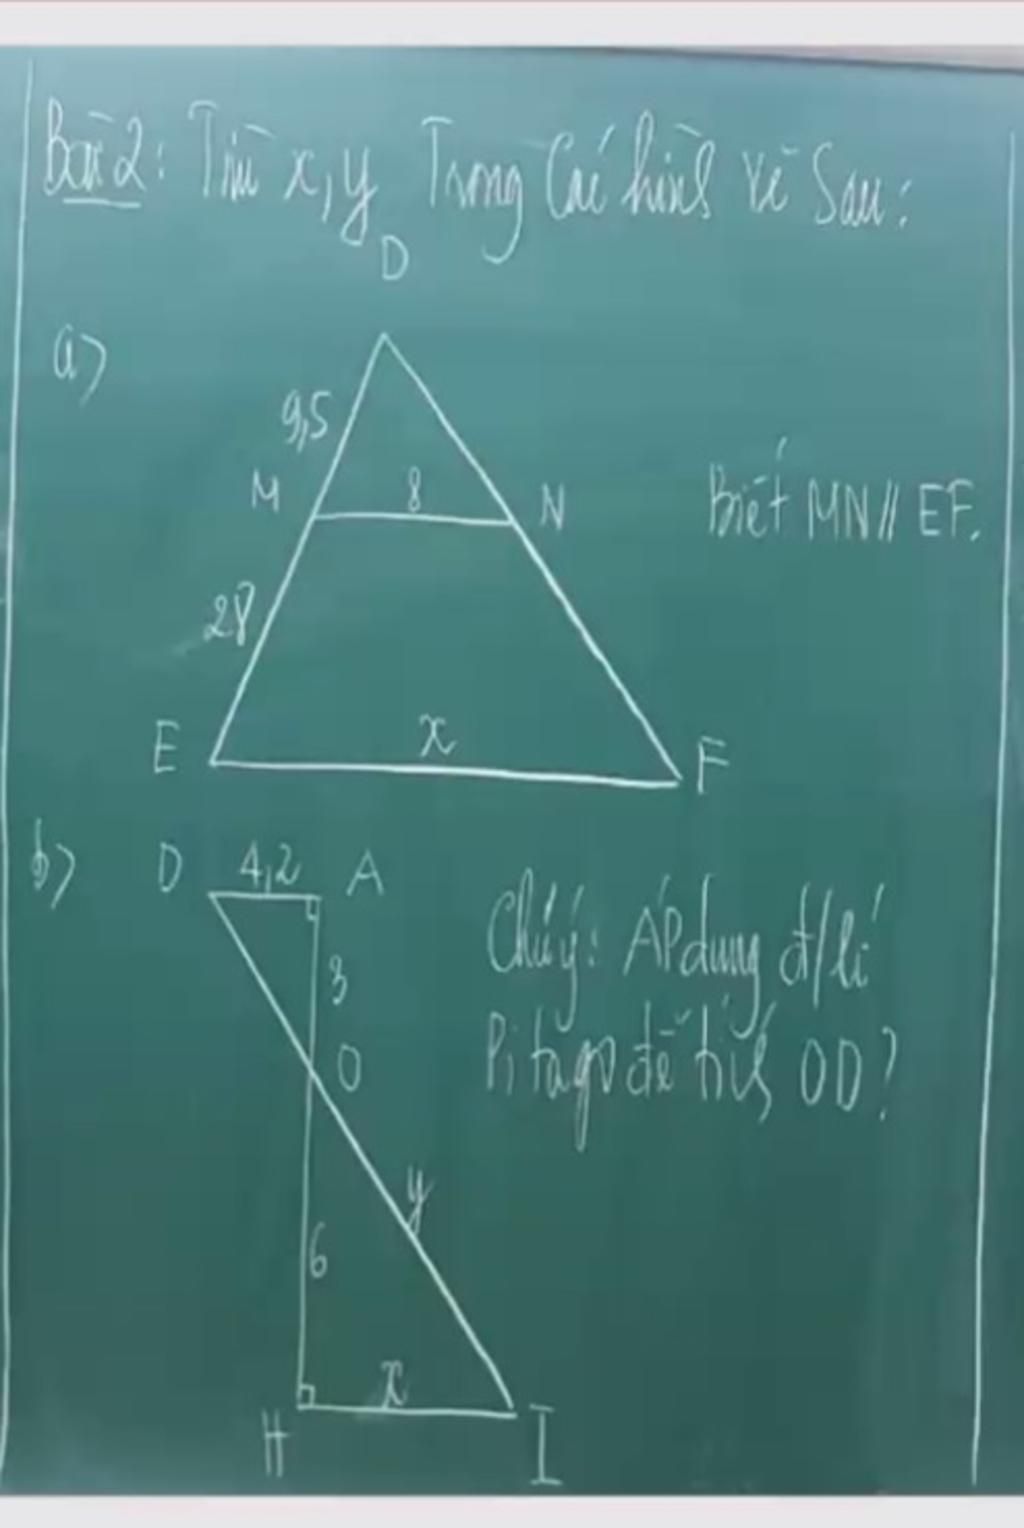 Bài 2: Tìm x, y Trong Các hình vẽ Sau:
D
a)
9,5
M
8
N
Biết MN // EF.
28
E
x
F
b)
D
4,2
A
Chú ý: ÁP dụng đ/lí
3
O
Pi ta go để tính OD?
y
6
x
H
I